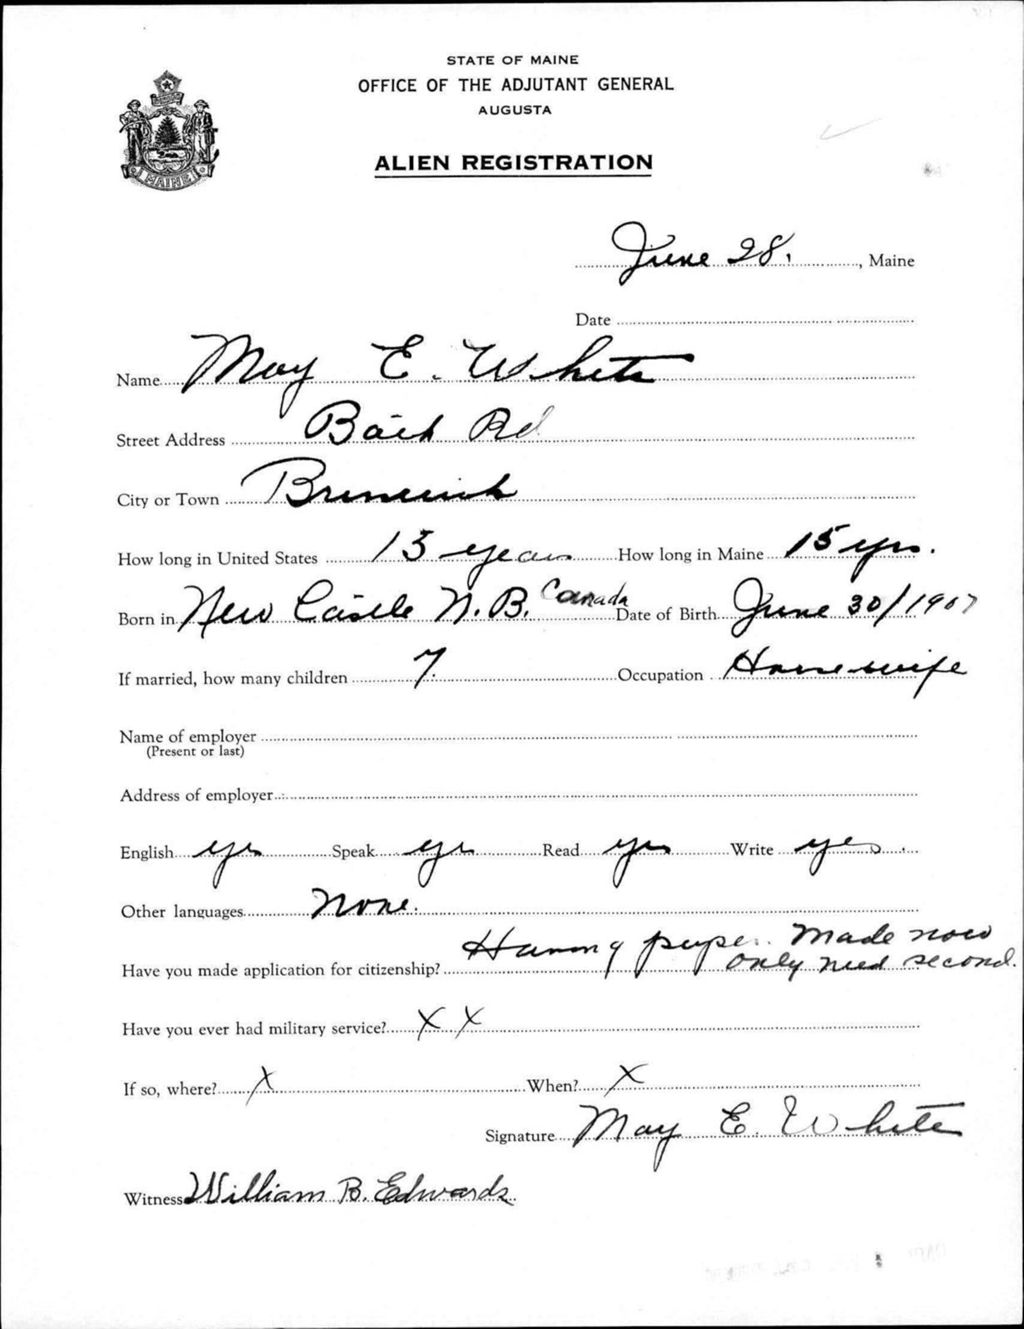 STATE OF MAINE
OFFICE OF THE ADJUTANT GENERAL
AUGUSTA
ALIEN REGISTRATION
MAINE
June 28, Maine
Date
Name May E. White
Street Address Bath Rd
City or Town Brunswick
How long in United States 15 years How long in Maine 15 yrs.
Born in New Castle N. B. Canada Date of Birth June 30/1907
If married, how many children 7. Occupation Housewife
Name of employer
(Present or last)
Address of employer
English yes Speak yes Read yes Write yes.
Other languages None.
Have you made application for citizenship? Having paper. Made now
only need second.
Have you ever had military service? X X
If so, where? X When? X
Signature May E. White
Witness William B. Edwards